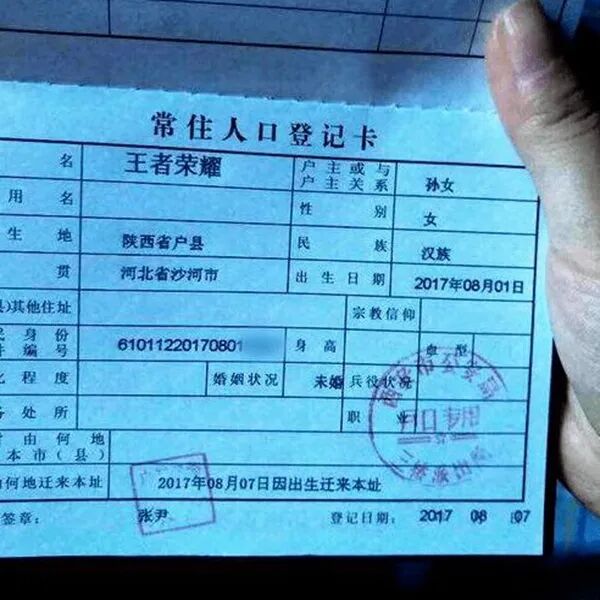 常住人口登记卡
名 王者荣耀 户主或与户主关系 孙女
用名 性别 女
生地 陕西省户县 民族 汉族
贯 河北省沙河市 出生日期 2017年08月01日
县)其他住址 宗教信仰
民身份件编号 61011220170801 身高 血型
化程度 婚姻状况 未婚 兵役状况
务处所 职业
时由何地
本市(县)
何地迁来本址 2017年08月07日因出生迁来本址
签章: 张尹 登记日期: 2017 08 07
市公安局
户口专用